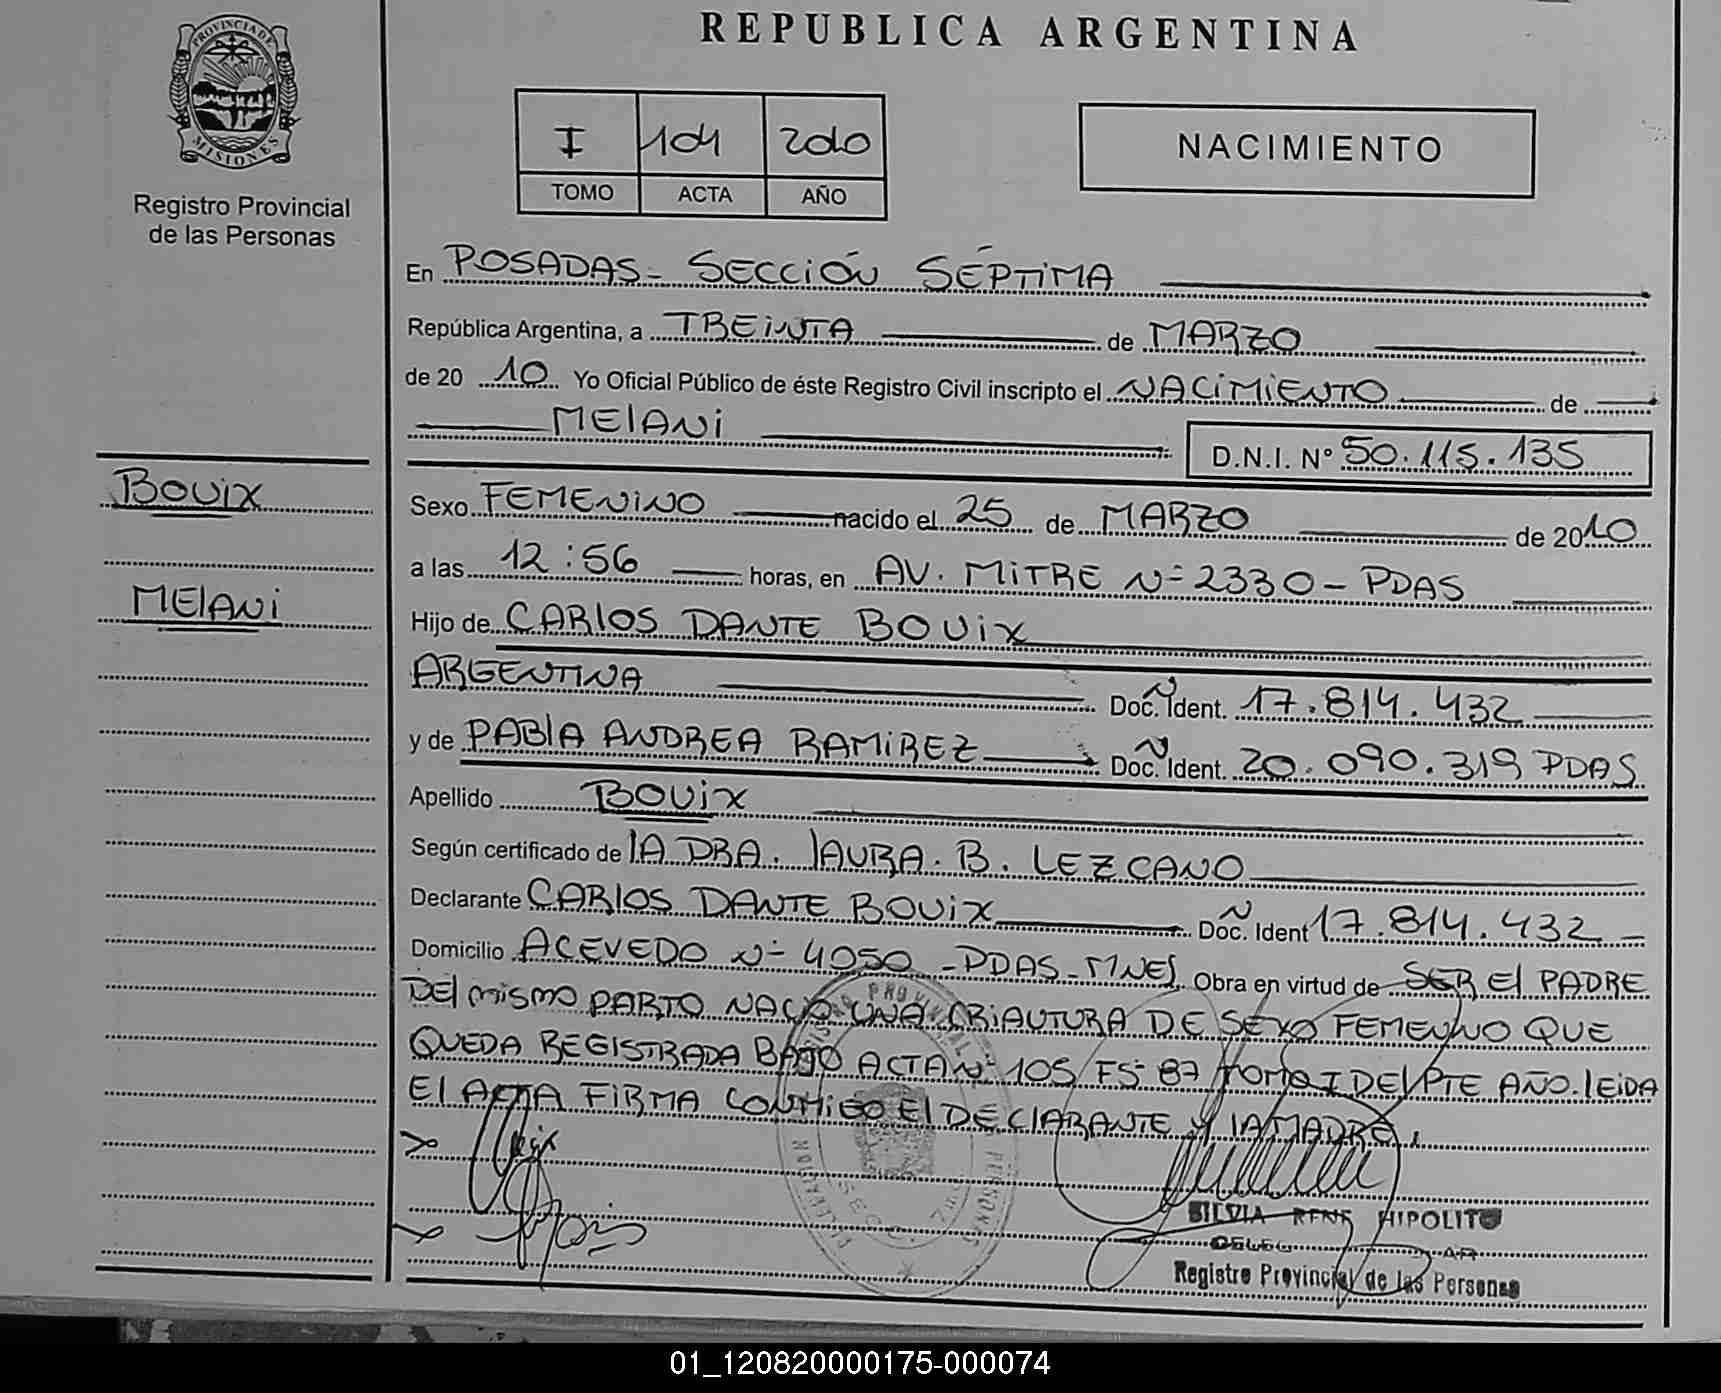 REPUBLICA ARGENTINA
PROVINCIA DE
MISIONES
Registro Provincial
de las Personas
I 104 2010
TOMO ACTA AÑO
NACIMIENTO
En POSADAS- SECCIÓN SÉPTIMA
República Argentina, a TREINTA de MARZO
de 20 10 Yo Oficial Público de éste Registro Civil inscripto el NACIMIENTO de
MElANi
D.N.I. N° 50.115.135
BOUiX
MElANi
Sexo FEMENINO nacido el 25 de MARZO de 2010
a las 12:56 horas, en AV. MITRE N° 2330 - PDAS
Hijo de CARlOS DANTE BOUiX
ARGENTINA Doc. Ident. 17.814.432
y de PABlA ANDREA RAMIREZ Doc. Ident. 20.090.319 PDAS
Apellido BOUiX
Según certificado de lA DRA. lAURA. B. LEZCANO
Declarante CARlOS DANTE BOUiX Doc. Ident 17.814.432
Domicilio ACEVEDO N° 4050 -PDAS-MNES Obra en virtud de SER El PADRE
DEl MISMO PARTO NACIO UNA CRIAUTURA DE SEXO FEMENINO QUE
QUEDA REGISTRADA BAJO ACTA N° 105 FS° 87 TOMO I DEl PTE AÑO. lEIDA
El ACTA FIRMA CONMIGO El DEClARANTE Y lA MADRE.
SILVIA RENE HIPOLITO
Registro Provincial de las Personas
01_120820000175-000074